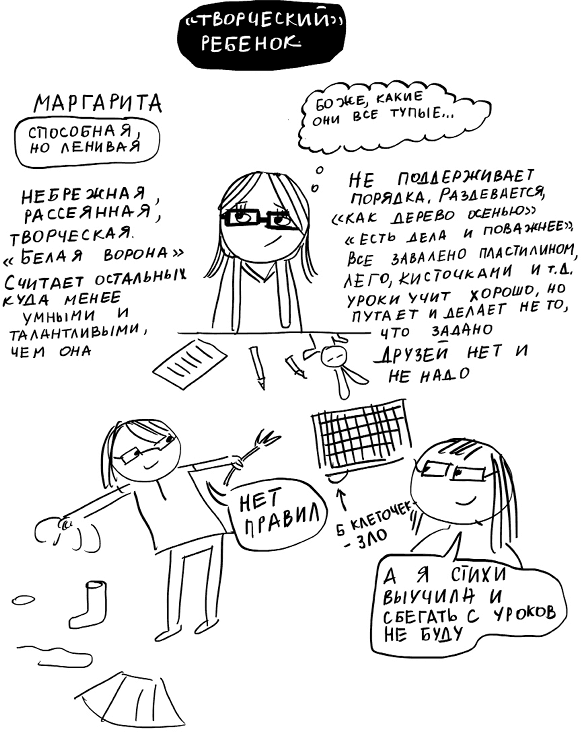 «ТВОРЧЕСКИЙ»
РЕБЕНОК
МАРГАРИТА
СПОСОБНАЯ,
НО ЛЕНИВАЯ
НЕБРЕЖНАЯ,
РАССЕЯННАЯ,
ТВОРЧЕСКАЯ.
«БЕЛАЯ ВОРОНА»
СЧИТАЕТ ОСТАЛЬНЫХ
КУДА МЕНЕЕ
УМНЫМИ И
ТАЛАНТЛИВЫМИ,
ЧЕМ ОНА
БОЖЕ, КАКИЕ
ОНИ ВСЕ ТУПЫЕ...
НЕ ПОДДЕРЖИВАЕТ
ПОРЯДКА, РАЗДЕВАЕТСЯ,
«КАК ДЕРЕВО ОСЕНЬЮ»
«ЕСТЬ ДЕЛА И ПОВАЖНЕЕ».
ВСЕ ЗАВАЛЕНО ПЛАСТИЛИНОМ,
ЛЕГО, КИСТОЧКАМИ И Т.Д.
УРОКИ УЧИТ ХОРОШО, НО
ПУТАЕТ И ДЕЛАЕТ НЕ ТО,
ЧТО ЗАДАНО
ДРУЗЕЙ НЕТ И
НЕ НАДО
НЕТ
ПРАВИЛ
5 КЛЕТОЧЕК
- ЗЛО
А Я СТИХИ
ВЫУЧИЛА И
СБЕГАТЬ С УРОКОВ
НЕ БУДУ